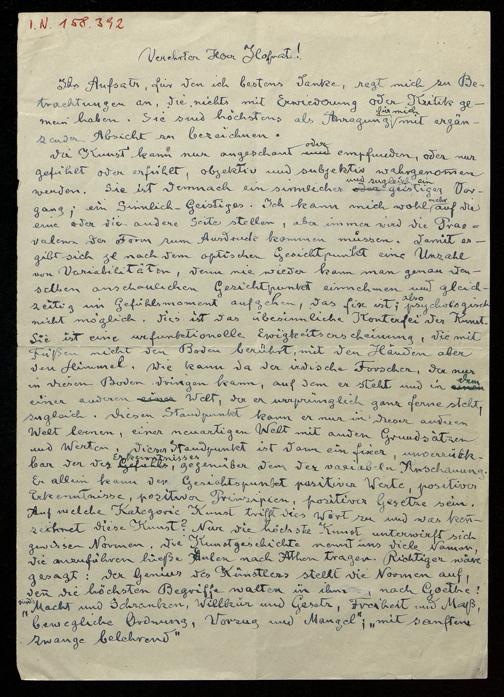 I.N. 158.392
Verehrter Herr Hofrat!
Ihr Aufsatz, für den ich bestens danke, regt mich zu Be-
trachtungen an, die nichts mit Erwiederung oder Kritik ge-
mein haben. Sie sind höchstens als Anregung für mich mit ergän-
zender Absicht zu bezeichnen.
Die Kunst kann nur angeschaut oder empfunden, oder nur
gefühlt oder erfühlt, objektiv und subjektiv wahrgenommen
werden. Sie ist demnach ein sinnlicher und zugleich geistiger Vor-
gang; ein Sinnlich-Geistiges. Ich kann mich wohl mehr auf die
eine oder die andere Seite stellen, aber immer wird die Prae-
valenz der Form zum Ausdruck kommen müssen. Damit er-
gibt sich je nach dem optischen Gesichtspunkt eine Unzahl
von Variabilitäten, denn nie wieder kann man genau den-
selben anschaulichen Gesichtpunkt einnehmen und gleich-
zeitig im Gefühlsmoment aufgehen, das fixe ist also psychologisch
nicht möglich, dies ist das übersinnliche Konterfei der Kunst.
Sie ist eine unfunktionelle Ewigkeitserscheinung, die mit
Füßen nicht den Boden berührt, mit den Händen aber
den Himmel. Wie kann da der irdische Forscher, der nur
in diesen Boden dringen kann, auf dem er steht und in
einer anderen Welt, der er ursprünglich ganz ferne steht,
zugleich. Diesen Standpunkt kann er nur in dieser andern
Welt lernen, einer neuartigen Welt mit andern Grundsätzen
und Werten. Dieser Standpunkt ist dann ein fixer, unverrück-
bar der des Erkenntnisses Gefühls, gegenüber dem der variablen Anschauung.
Er allein kann den Gesichtspunkt positiver Werte, positiver
Erkenntnisse, positiver Prinzipien, positiver Gesetze sein.
Auf welche Kategorie Kunst trifft dies Wort zu und was kenn-
zeichnet diese Kunst? Nur die höchste Kunst unterwirft sich
gewissen Normen, die Kunstgeschichte nennt uns viele Namen,
die anzuführen hieße Eulen nach Athen tragen. Richtiger wäre
gesagt: der Genius des Künstlers stellt die Normen auf,
denn die höchsten Begriffe walten in ihm, nach Goethe:
"Macht und Schranken, Willkür und Gesetz, Freiheit und Maß,
bewegliche Ordnung, Vorzug und Mangel"; "mit sanftem
Zwange belehrend"